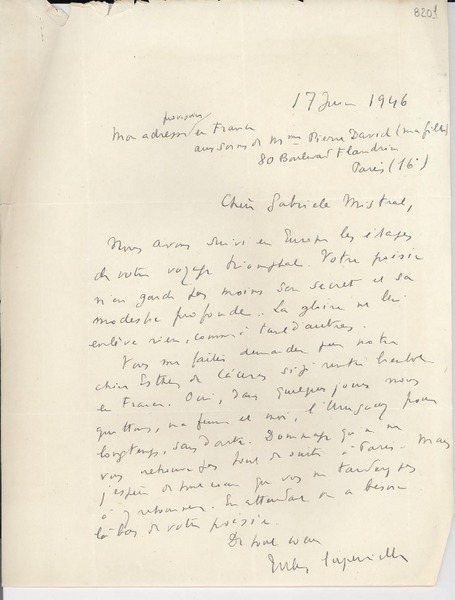 8201
17 Juin 1946
provisoire
Mon adresse en France
aux soins de Mme Pierre David (ma fille)
80 Boulevard Flandrin
Paris (16e)
Chère Gabriela Mistral,
Nous avons suivi en Europe les étapes
de votre voyage triomphal. Votre poésie
n'en garde pas moins son secret et sa
modestie profonde. La gloire ne lui
enlève rien, comme à tant d'autres.
Vous me faites demander par notre
chère Esther de Cáceres si je rentre bientôt
en France. Oui, dans quelques jours nous
quittons, ma femme et moi, l'Uruguay pour
longtemps, sans doute. Dommage qu'on ne
vous retrouve pas tout de suite à Paris. Mais
j'espère de tout cœur que vous ne tarderez pas
à y retourner. En attendant on a besoin
là-bas de votre poésie.
De tout cœur
Jules Supervielle